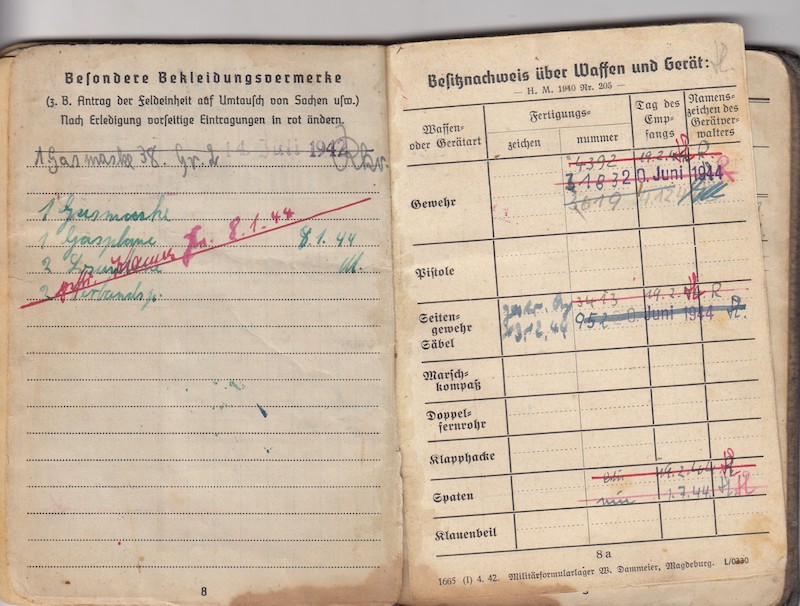 Besondere Bekleidungsvermerke
(z. B. Antrag der Feldeinheit auf Umtausch von Sachen usw.)
Nach Erledigung vorseitige Eintragungen in rot ändern.
1 Gasmaske 38. Gr. 2 14. Juli 1942
1 Gasmaske
1 Gasplane 8. 1. 44
8. 1. 44
2
2 Verbandsp.
8
Besitznachweis über Waffen und Gerät:
— H. M. 1940 Nr. 205 —
Waffen- oder Gerätart
Fertigungs-
zeichen
nummer
Tag des Emp- fangs
Namens- zeichen des Gerätever- walters
Gewehr
4392 19.2.44 R.
1832 20. Juni 1944
3619
Pistole
Seiten- gewehr Säbel
3413 19.2. R
952 0. Juni 1944
Marsch- kompaß
Doppel- fernrohr
Klapphacke
Spaten
19.2.44
1.7.44
Klauenbeil
8a
1665 (I) 4. 42. Militärformularlager W. Dammeier, Magdeburg. L/0330